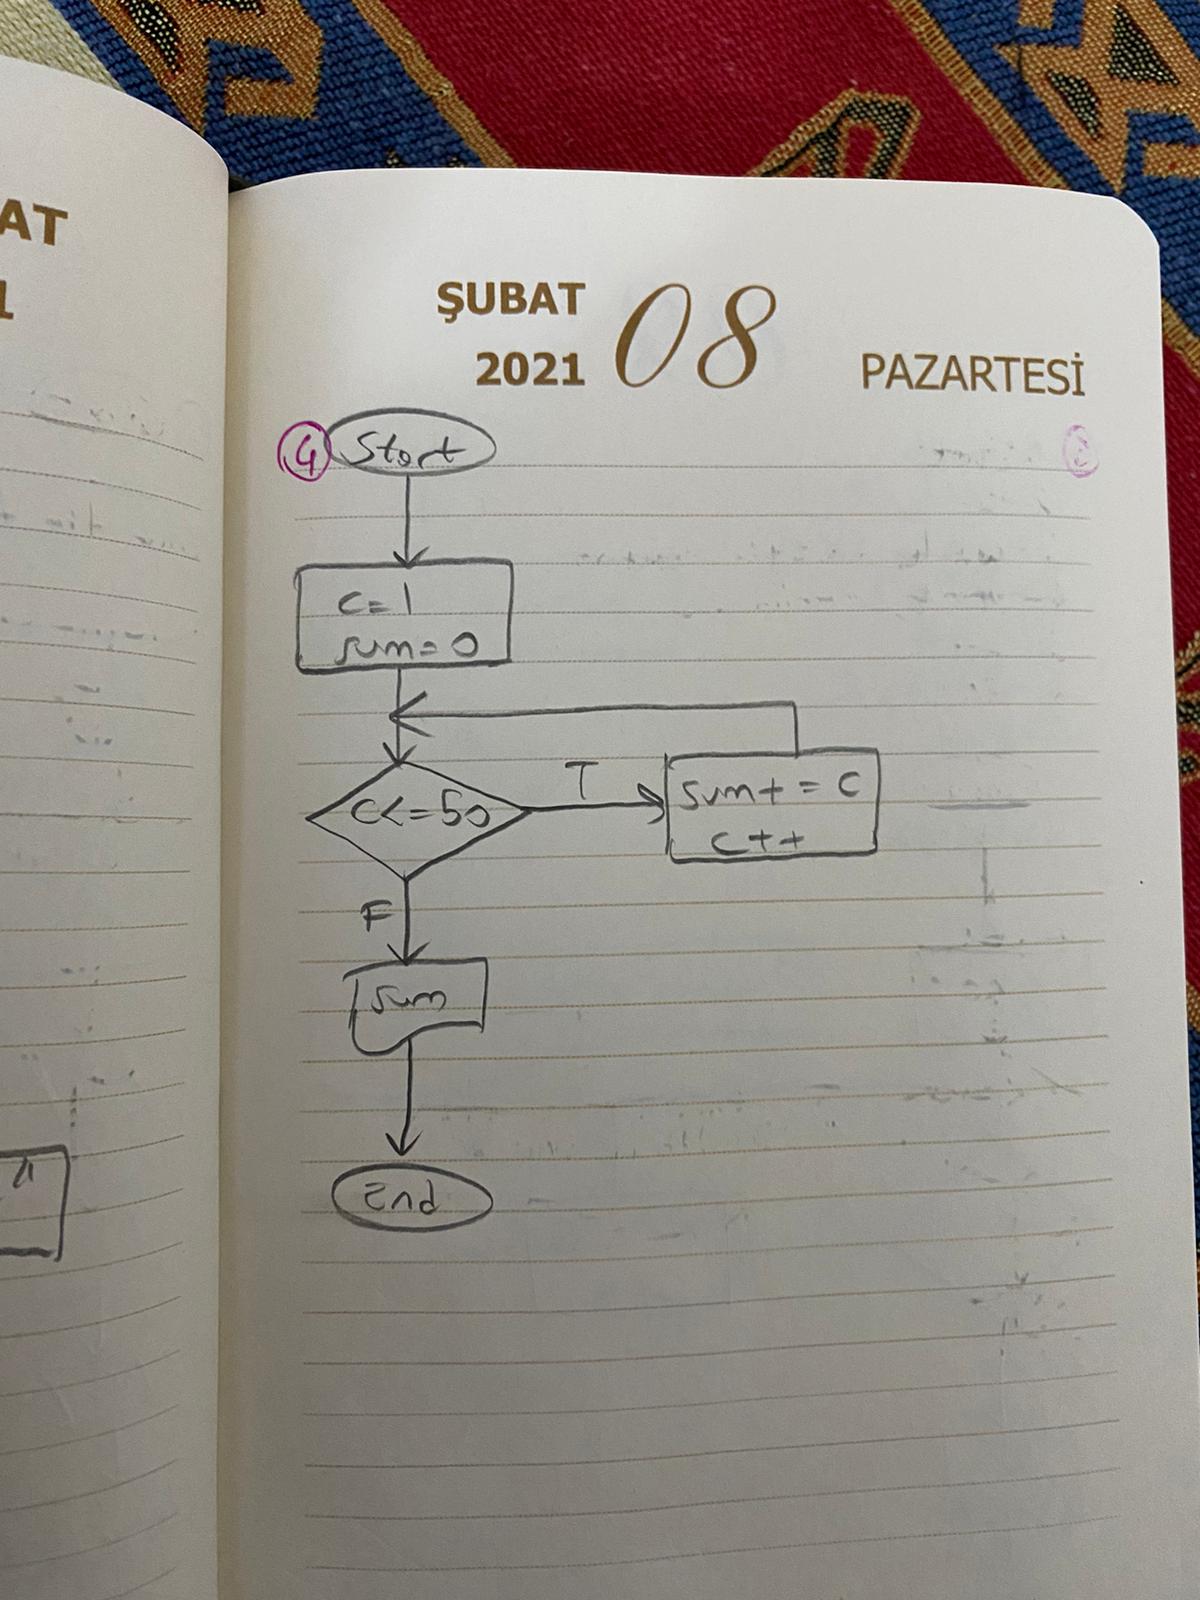 AT
1
ŞUBAT 08
2021 PAZARTESİ
4 Start
c=1
sum=0
c<=50
T
sum+=c
c++
F
sum
End